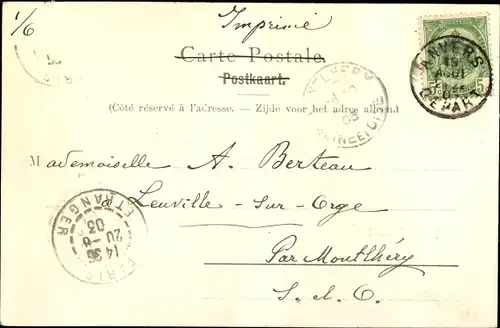 1/6
Imprimé
Carte Postale
Postkaart.
(Côté réservé à l'adresse. — Zijde voor het adres alleen.)
ANVERS
AOUT
DEPART
5
Mademoiselle A. Berteau
à Leuville-sur-Orge
Par Montlhéry
S. et O.
PARIS
ETRANGER
14 30
20 -8
03